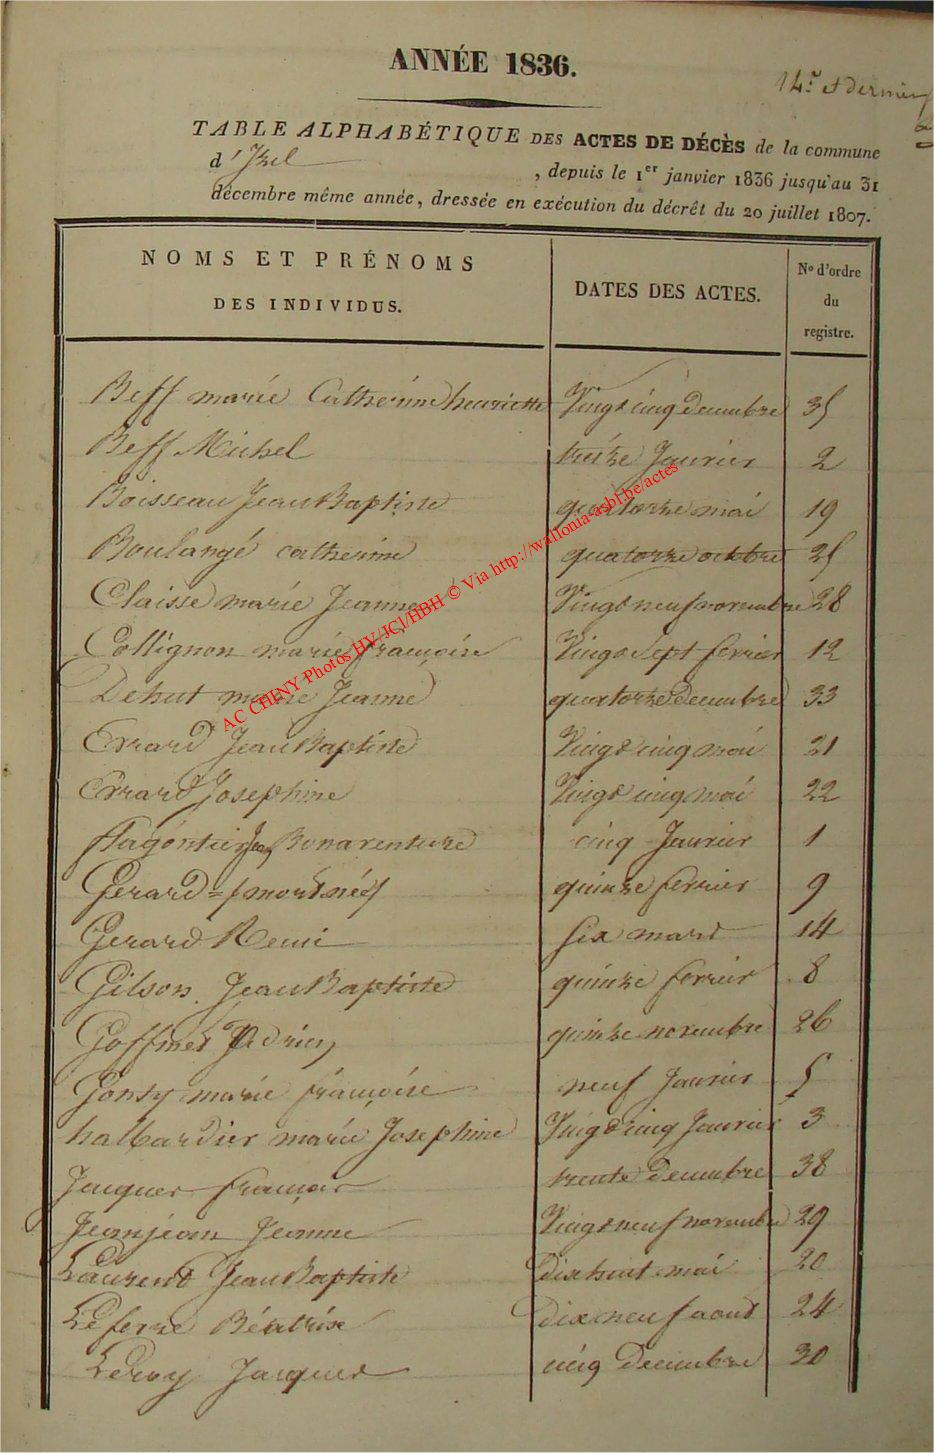 ANNÉE 1836.
14.r et dernier
TABLE ALPHABÉTIQUE DES ACTES DE DÉCÈS de la commune
d'Izel , depuis le 1er janvier 1836 jusqu'au 31
décembre même année, dressée en exécution du décrêt du 20 juillet 1807.
NOMS ET PRÉNOMS DES INDIVIDUS. DATES DES ACTES. No d'ordre du registre.
Beff marie Catherine henriette Vingt cinq decembre 35
Beff Michel treize Janvier 2
Boisseau Jean Baptiste quatorze mai 19
Boulangé catherine quatorze octobre 25
Claisse marie Jeanne Vingt neuf novembre 28
Collignon marie françoise Vingt sept fevrier 12
Dehut marie Jeanne quatorze decembre 33
Errard Jean Baptiste Vingt cinq mai 21
Errard Josephine Vingt cinq mai 22
Jean Bonaventure cinq Janvier 1
Gerard = (mort né) quinze fevrier 9
Gerard Remi six mars 14
Gilson Jean Baptiste quinze fevrier 8
Goffinet Adrien quinze novembre 26
Gonry marie françoise neuf Janvier 5
halbardier marie Josephine Vingt cinq Janvier 3
Jacques françois trente decembre 38
Jeanjean Jeanne Vingt neuf novembre 29
Laurent Jean Baptiste Dix huit mai 20
Lefevre Béatrise Dix neuf aout 24
Leroy Jacques cinq Decembre 30
AC CHINY Photos HV/JCl/HBH © Via http://wallonia-asbl.be/actes